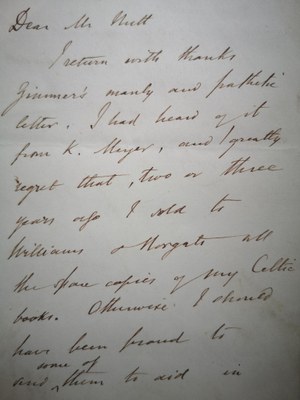 Dear Mr Nutt
I return with thanks
Zimmer's manly and pathetic
letter. I had heard of it
from K. Meyer, and I greatly
regret that, two or three
years ago I sold to
Williams & Norgate all
the spare copies of my Celtic
books. Otherwise I should
have been proud to
some of
and them to aid in